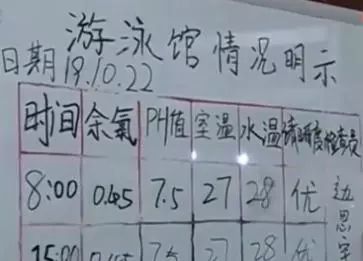 游泳馆情况明示
日期19.10.22
时间 余氧 PH值 室温 水温 清晰度 检查员
8:00 0.45 7.5 27 28 优 边思宇
15:00 0.45 7.5 27 28 优